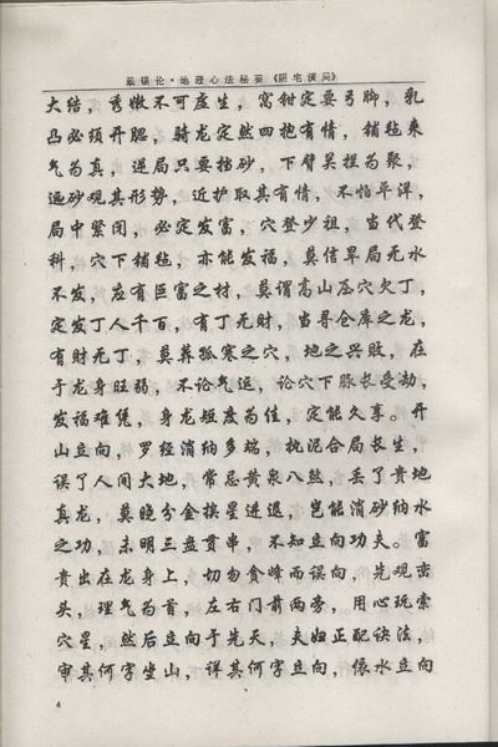 地理心法秘要《阴宅谋局》
大结，秀嫩不可虚生，窝钳定要弓脚，乳
凸必须开腮，骑龙定然四抱有情，铺毡来
气为真，逆局只要掐砂，下臂关拦为聚，
远砂观其形势，近护取其有情，不怕平洋，
局中紧闭，必定发富，穴登少祖，当代登
科，穴下铺毡，亦能发福，莫信旱局无水
不发，左有巨富之村，莫谓高山压穴欠丁，
定发丁人千百，有丁无财，当寻仓库之龙，
有财无丁，莫葬孤寒之穴，地之兴败，在
于龙身旺弱，不论气运，论穴下脉长受劫，
发福难凭，身龙短度为佳，定能久享。开
山立向，罗经消纳多端，执泥合局长生，
误了人间大地，常忌黄泉八煞，丢了贵地
真龙，莫晓分金挨星进退，岂能消砂纳水
之功，未明三盘贯串，不知立向功夫。富
贵出在龙身上，切勿贪峰而误向，先观峦
头，理气为首，左右门前两旁，用心玩索
穴星，然后立向于先天，夫妇正配诀法，
审其何字坐山，详其何字立向，依水立向
4